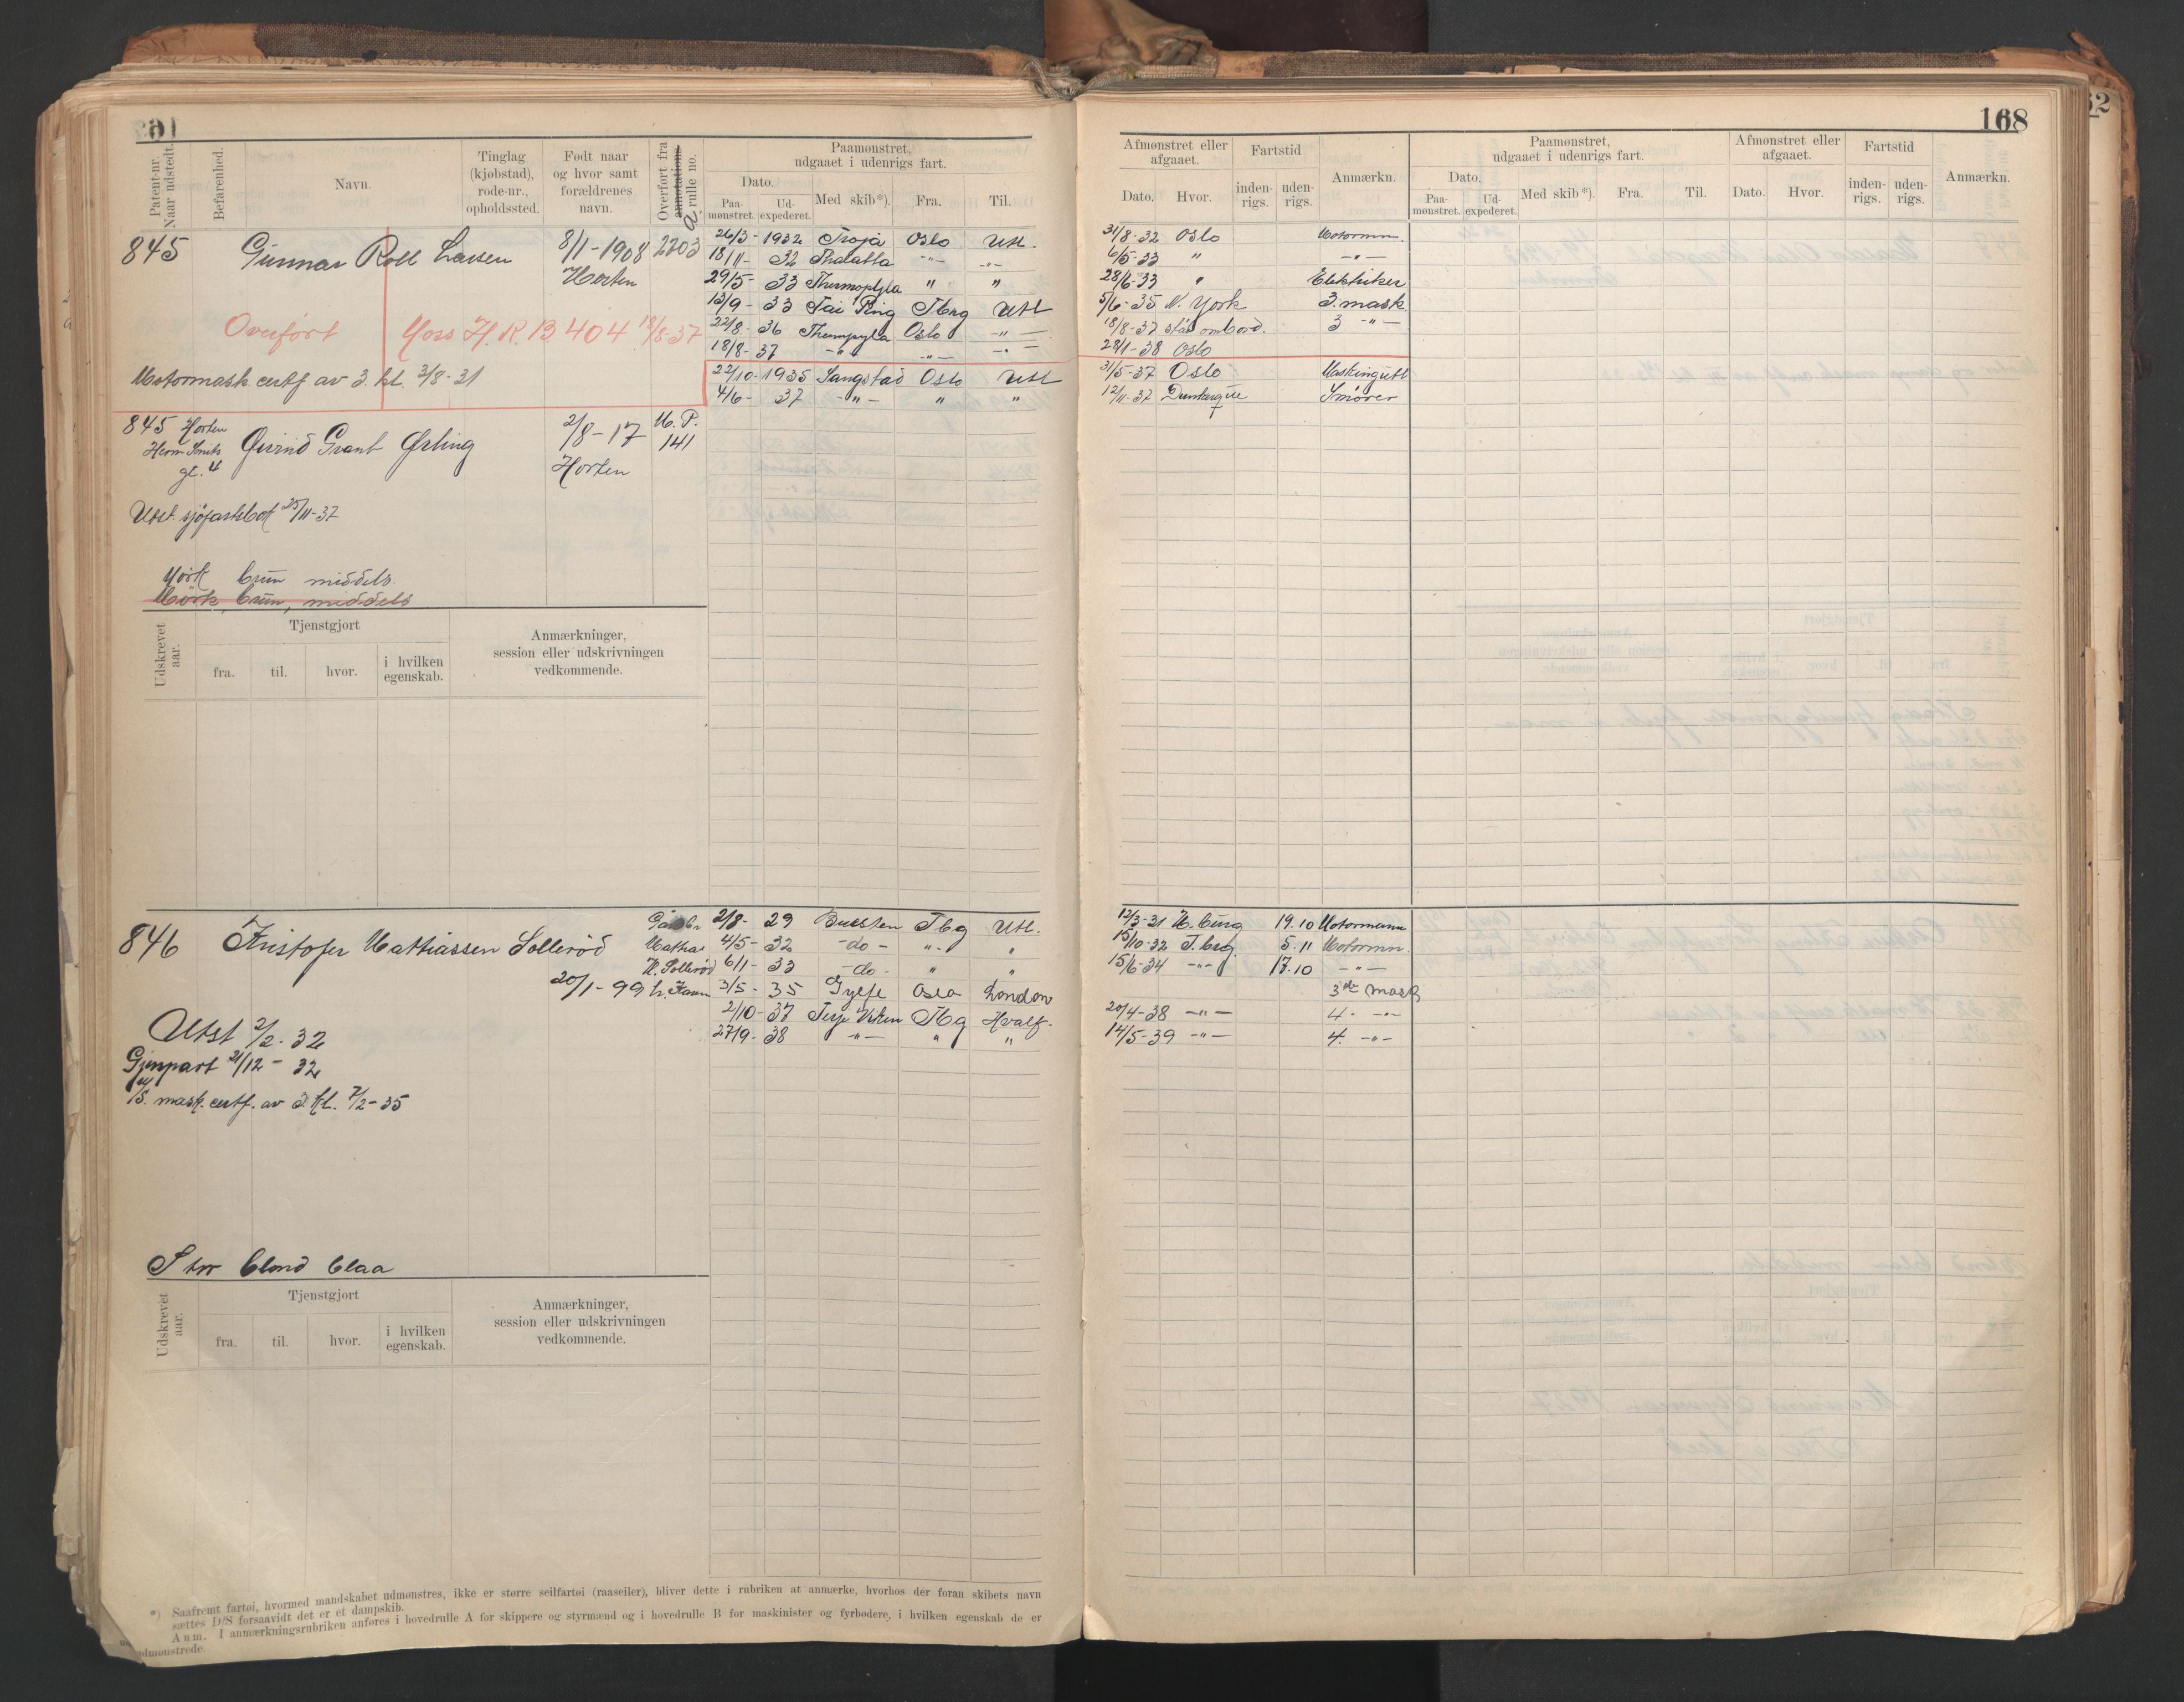 168
Patent-nr. Naar udstedt.
Befarenhed.
Navn.
Tinglag (kjøbstad), rode-nr., opholdssted.
Født naar og hvor samt forældrenes navn.
Overført fra annotations rulle no.
Paamønstret, udgaaet i udenrigs fart.
Dato.
Paa-mønstret.
Ud-expederet.
Med skib*).
Fra.
Til.
Afmønstret eller afgaaet.
Dato.
Hvor.
Fartstid
inden-rigs.
uden-rigs.
Anmærkn.
Paamønstret, udgaaet i udenrigs fart.
Dato.
Paa-mønstret.
Ud-expederet.
Med skib*).
Fra.
Til.
Afmønstret eller afgaaet.
Dato.
Hvor.
Fartstid
inden-rigs.
uden-rigs.
Anmærkn.
845 Gunnar Roll Larsen 8/1-1908 2203
Horten
26/3-1932 Troja Oslo Utl. 31/8-32 Oslo Motormn.
18/11-32 Thalatta -"- -"- 6/5-33 " -"-
29/5-33 Thermopylæ " " 28/6-33 " Elektriker
13/9-33 Tai Ping Tbrg Utl 5/6-35 N. York 3. mask
22/8-36 Oslo -"- 18/8-37 står ombord. 3 -"-
18/8-37 -"- -"- -"- 28/1-38 Oslo
Overført Moss H.R.B. 404 18/8-37
Motormask certf av 3. kl. 3/8-31
22/10-1935 Sangstad Oslo Utl 31/5-37 Oslo Maskingutt
4/6-37 -"- " " 12/11-37 Dunkerque Smører
845 Horten
Herm Smits
gt. 4
Øivind Grant Ørling 2/8-17 M.P. 141
Horten
Utst. sjøfartsbok 25/11-37
Mørk brun middels.
Mörk, brun, middels
Udskrevet aar.
Tjenstgjort
fra.
til.
hvor.
i hvilken egenskab.
Anmærkninger, session eller udskrivningen vedkommende.
846 Kristofer Mathiassen Sollerød
Mathias
H. Sollerød
20/1-99
2/8-29 Tbg Utl. 12/3-31 H.burg 19.10 Motormann
4/5-32 -do- -"- " 15/10-32 T.brg. 5.11 Motormn.
6/1-33 -do- " " 15/6-34 -"- 17.10 -"-
3/5-35 Gylfe Osla London 3die mask
2/10-37 Terje Viken Tbg Hvalf. 20/4-38 -"- 4. -"-
27/9-38 -"- " " 14/5-39 -"- 4. -"-
Utst 2/2-32
Gjenpart 21/12-32
mask. certf. av 3 kl. 7/2-35
Stor blond blaa
Udskrevet aar.
Tjenstgjort
fra.
til.
hvor.
i hvilken egenskab.
Anmærkninger, session eller udskrivningen vedkommende.
*) Saafremt fartøi, hvormed mandskabet udmønstres, ikke er større seilfartøi (raaseiler), bliver dette i rubriken at anmærke, hvorhos der foran skibets navn
sættes D/S forsaavidt det er et dampskib.
Anm. I anmærkningsrubriken anføres i hovedrulle A for skippere og styrmænd og i hovedrulle B for maskinister og fyrbødere, i hvilken egenskab de er
udmønstrede.